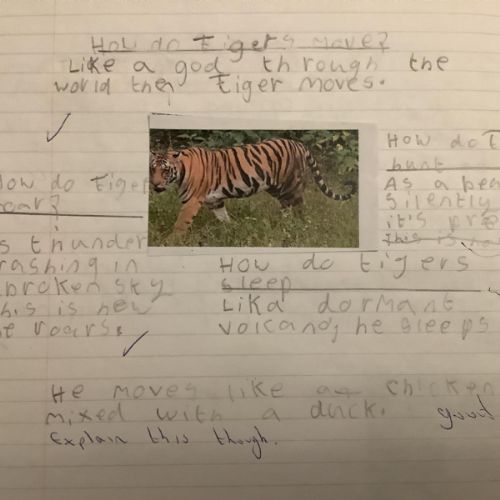 How do tigers move?
Like a god through the
world the tiger moves.
How do T
hunt
As a
silently
it's
This is
How do Tiger
roar?
s thunder
rashing in
broken sky
his is how
he roars.
How do tigers
sleep
Lika dormant
volcano, he sleeps
He moves like a chicken
mixed with a duck.
good
Explain this though.